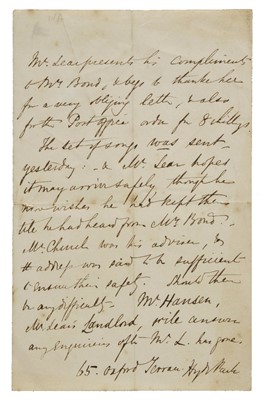 Mr Lear presents his compliments
to Mrs Bond, & begs to thank her
for a very obliging letter, & also
for the Post Office order for 8 shillings.
The set of songs was sent
yesterday: & Mr Lear hopes
it may arrive safely, though he
now wishes he had kept them
till he had heard from Mrs Bond.
Mr Church was his adviser, &
address was said to be sufficient
to ensure their safety. Should there
be any difficulty Mr Hansen,
Mr Lear's Landlord, will answer
any enquiries after Mr L. has gone.
65. Oxford Terrace Hyde Park